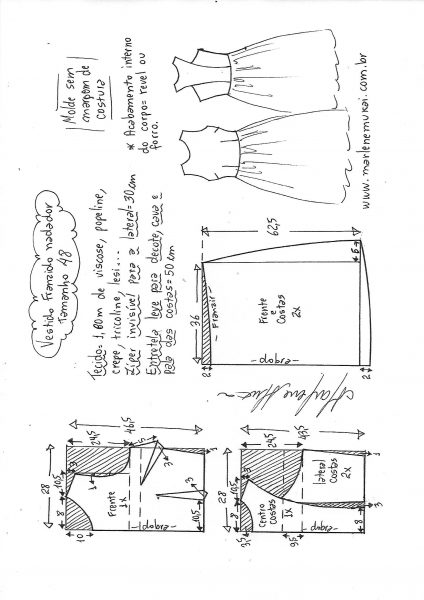 Vestido Franzido nadador
Tamanho 48
Molde sem
margem de
costura
Tecido= 1,80m de viscose, popeline,
crepe, tricoline, lesi...
Zíper invisível para a lateral= 30cm
Entretela leve para decote, cava e
pala das costas= 50cm
* Acabamento interno
do corpo= revel ou
forro.
www.marlenemukai.com.br
28
8
10,5
10
24,5
46,5
1
5
3
3
1
10,5
Frente
1x
-dobra-
28
8
10,5
3,5
24,5
43,5
9,5
1
3
centro
costas
1x
lateral
costas
2x
-dobra-
36
62,5
2
2
6
- Franzir -
Frente
e
Costas
2x
-dobra-